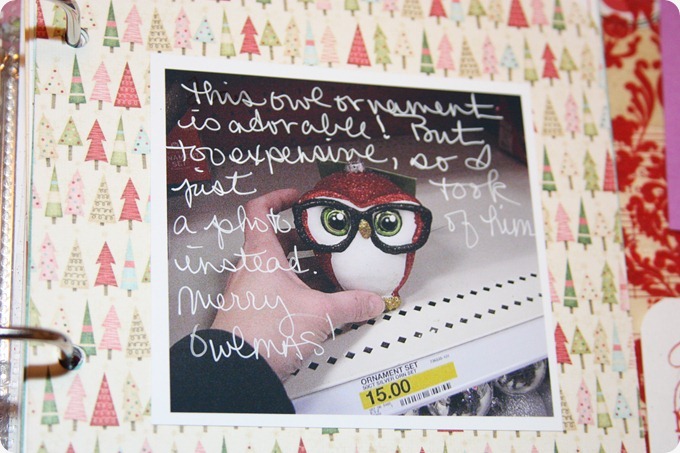 this owl ornament
is adorable! But
too expensive, so I
just took
a photo of him
instead.
Merry
Owlmas!
ORNAMENT SET
15.00